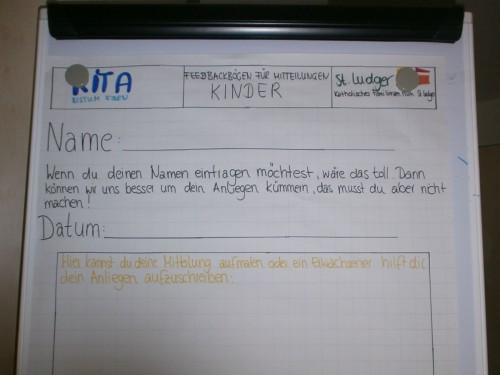 KITA
BISTUM ESSEN
FEEDBACKBÖGEN FÜR MITTEILUNGEN
KINDER
St. Ludger
Katholisches Familienzentrum St. Ludger
Name:
Wenn du deinen Namen eintragen möchtest, wäre das toll. Dann
können wir uns besser um dein Anliegen kümmern, das musst du aber nicht
machen!
Datum:
Hier kannst du deine Mitteilung aufmalen oder ein Erwachsener hilft dir
dein Anliegen aufzuschreiben: